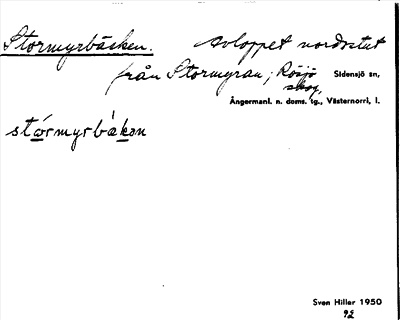 Stormyrbäcken. Avloppet nordostut
från Stormyran; Rösjö Sidensjö sn,
skog,
Ångermanl. n. doms. tg., Västernorrl. l.
stormyrbäkan
Sven Hiller 1950
92